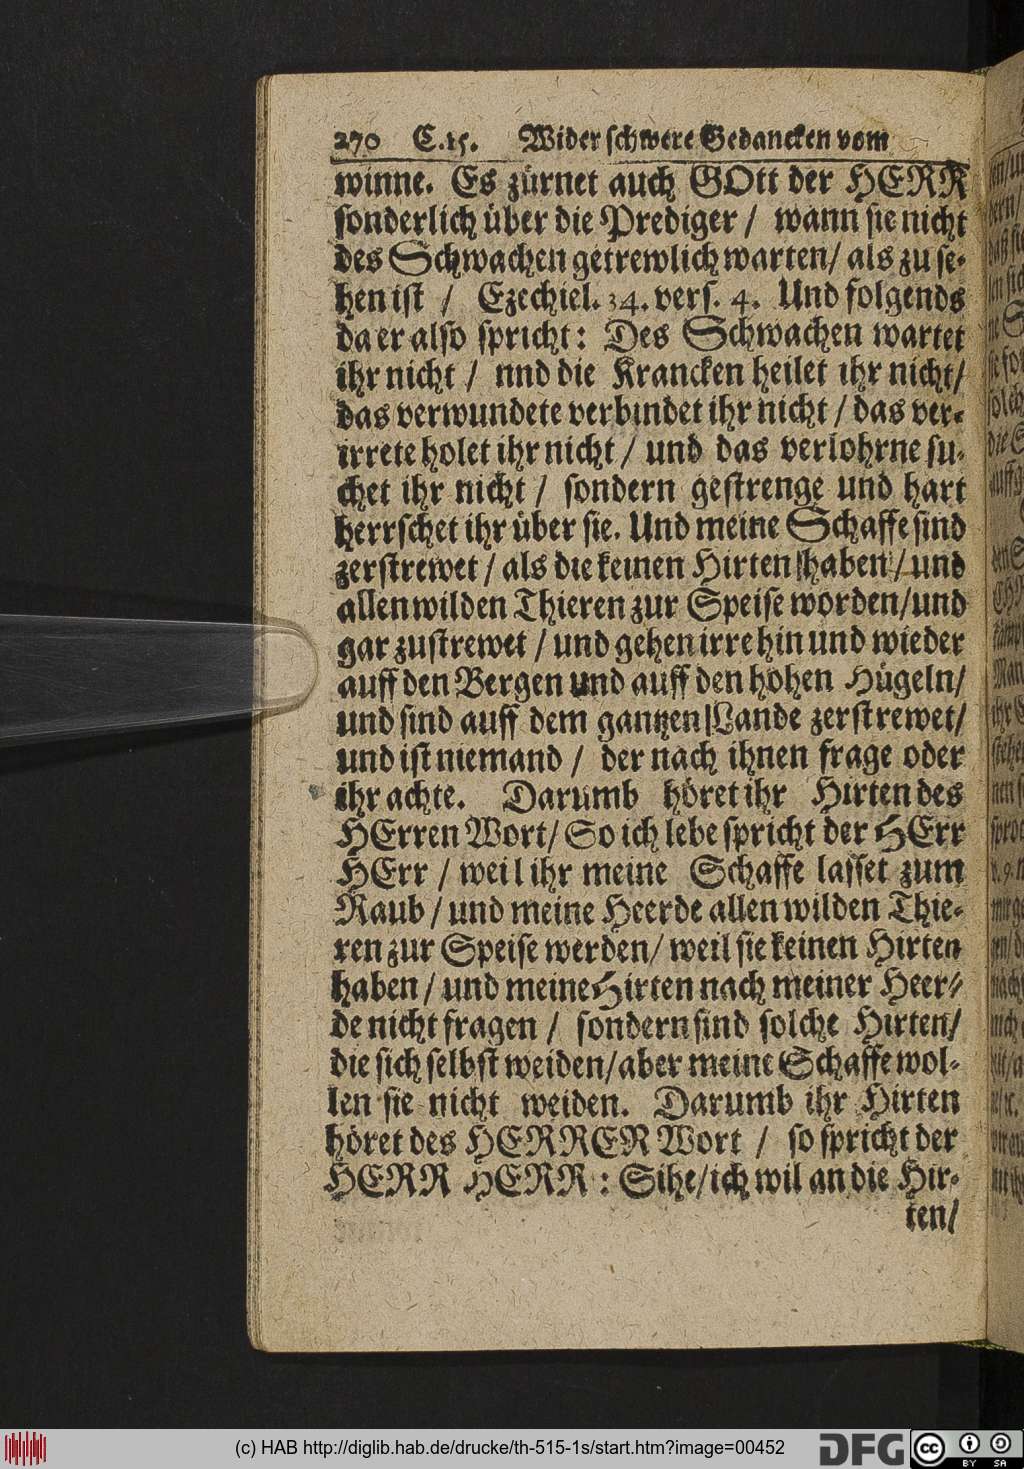 270 C.15. Wider schwere Gedancken vom
winne. Es zürnet auch GOtt der HERR
sonderlich über die Prediger / wann sie nicht
des Schwachen getrewlich warten/ als zu se-
hen ist / Ezechiel. 34. vers. 4. Und folgends
da er also spricht: Des Schwachen wartet
ihr nicht / nnd die Krancken heilet ihr nicht/
das verwundete verbindet ihr nicht / das ver-
irrete holet ihr nicht / und das verlohrne su-
chet ihr nicht / sondern gestrenge und hart
herrschet ihr über sie. Und meine Schaffe sind
zerstrewet / als die keinen Hirten haben / und
allen wilden Thieren zur Speise worden/und
gar zustrewet / und gehen irre hin und wieder
auff den Bergen und auff den hohen Hügeln/
und sind auff dem gantzen Lande zerstrewet/
und ist niemand / der nach ihnen frage oder
ihr achte. Darumb höret ihr Hirten des
HErren Wort/ So ich lebe spricht der HErr
HErr / weil ihr meine Schaffe lasset zum
Raub / und meine Heerde allen wilden Thie-
ren zur Speise werden/ weil sie keinen Hirten
haben / und meine Hirten nach meiner Heer-
de nicht fragen / sondern sind solche Hirten/
die sich selbst weiden/aber meine Schaffe wol-
len sie nicht weiden. Darumb ihr Hirten
höret des HERREN Wort / so spricht der
HERR HERR : Sihe/ich wil an die Hir-
ten/
(c) HAB http://diglib.hab.de/drucke/th-515-1s/start.htm?image=00452
DFG
cc BY SA